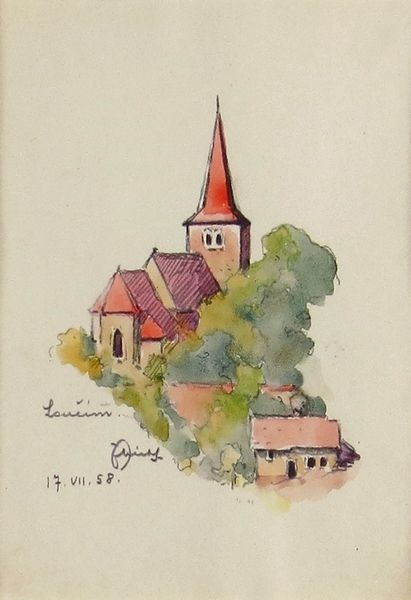 Loučim
17. VII. 58.